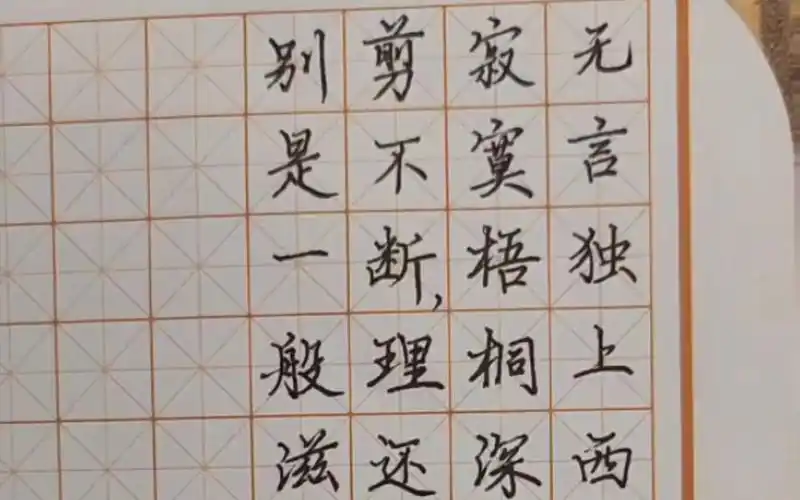 无言独上西
寂寞梧桐深
剪不断,理还
别是一般滋